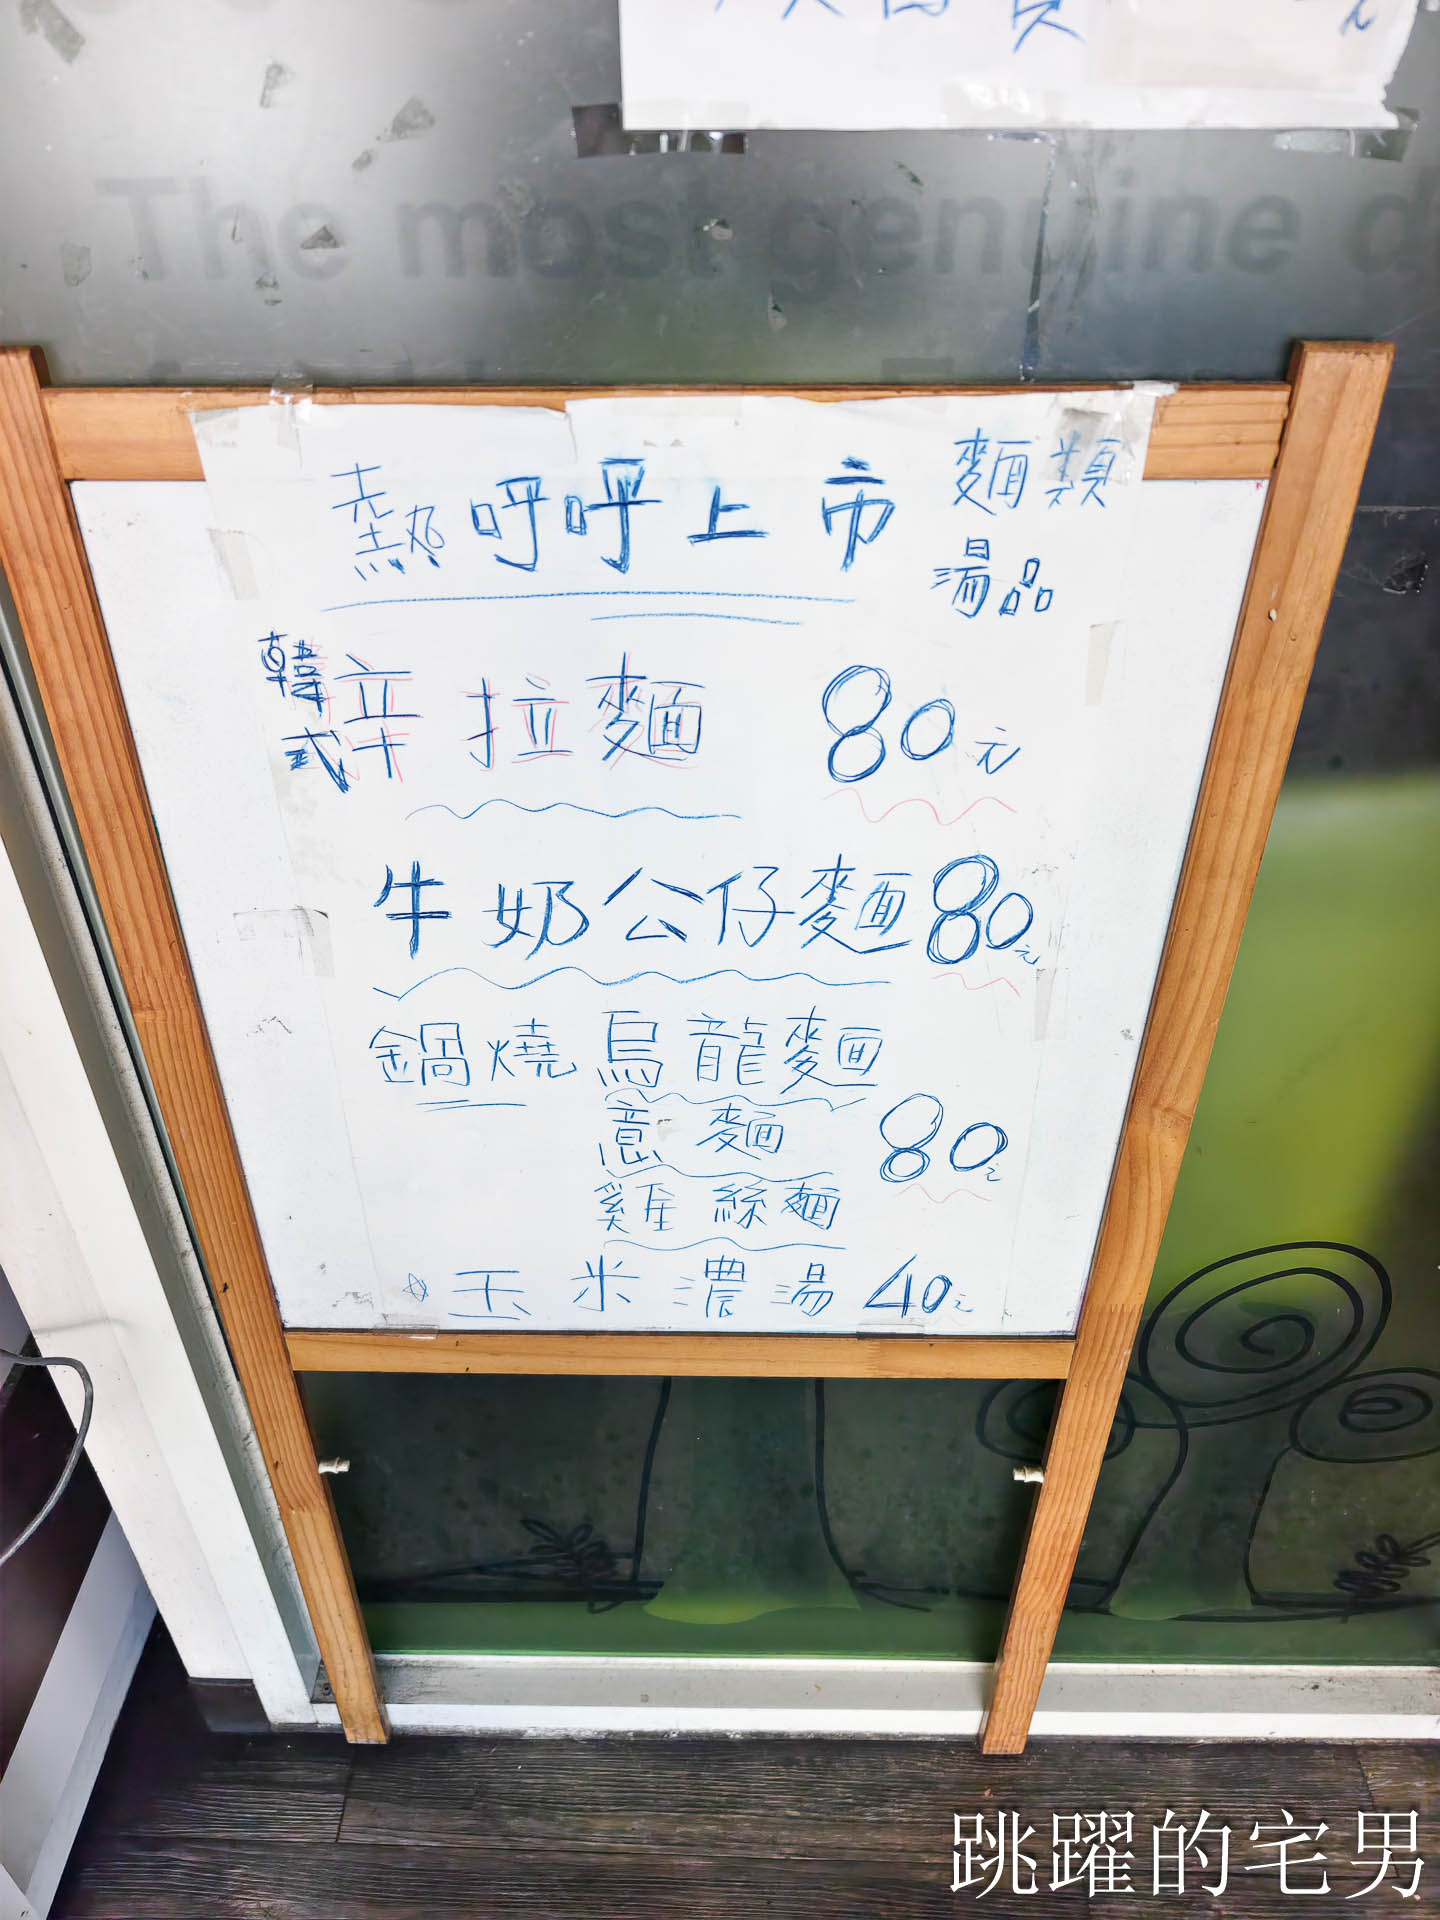 The most genuine d
熱呼呼上市 麵類
湯品
韓式辛拉麵 80元
牛奶公仔麵 80元
鍋燒烏龍麵
意麵 80元
雞絲麵
玉米濃湯 40元
跳躍的宅男